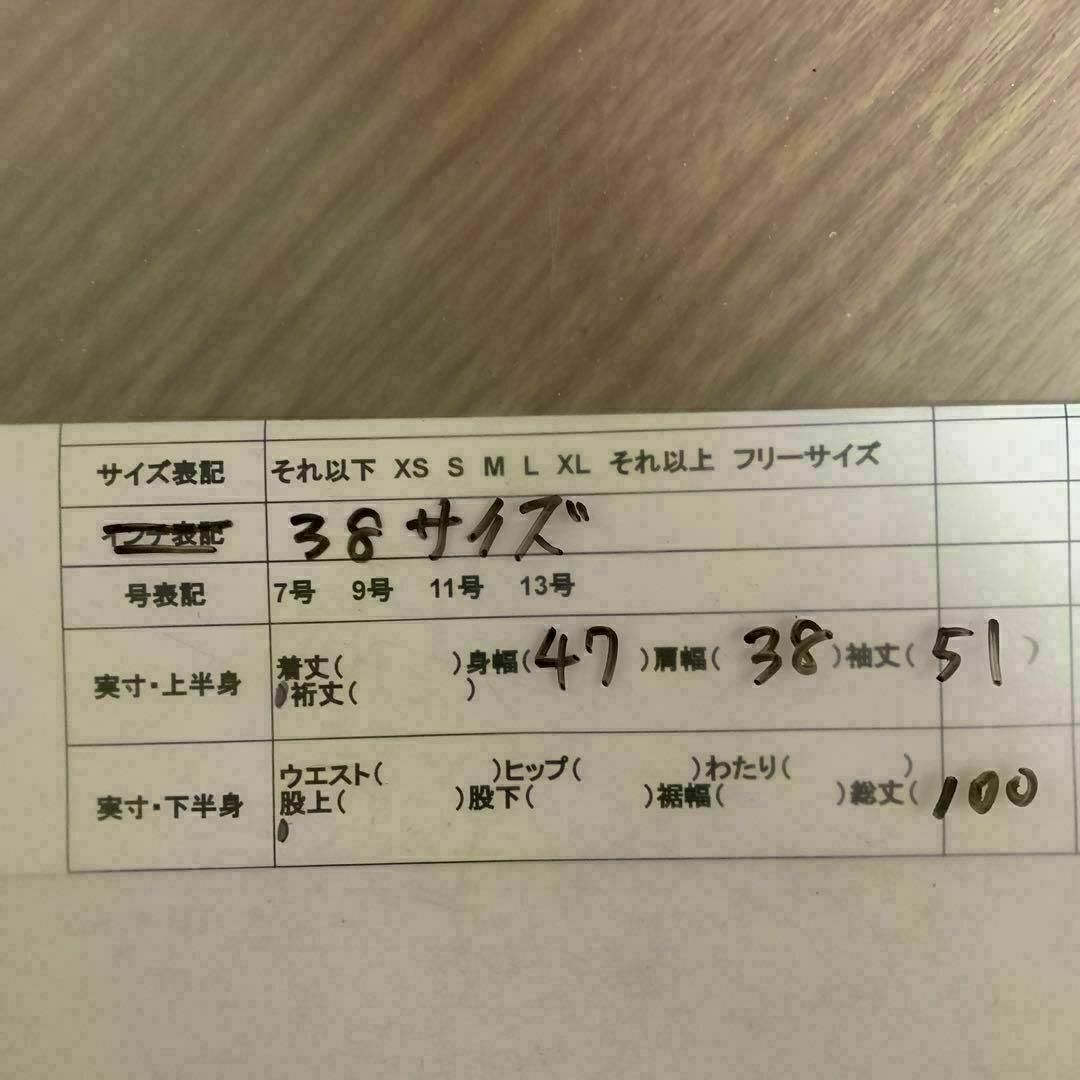 サイズ表記 それ以下 XS S M L XL それ以上 フリーサイズ
インチ表記 38サイズ
号表記 7号 9号 11号 13号
実寸・上半身 着丈( )身幅(47 )肩幅( 38)袖丈( 51 )
裄丈( )
実寸・下半身 ウエスト( )ヒップ( )わたり( )
股上( )股下( )裾幅( )総丈( 100